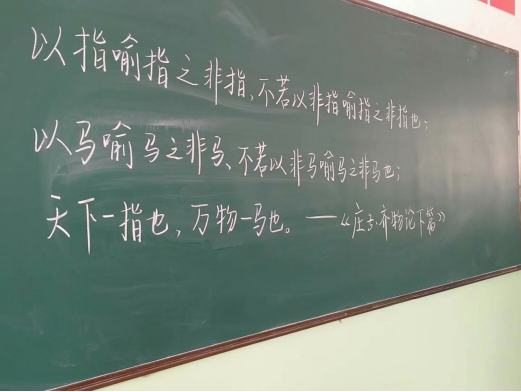 以指喻指之非指、不若以非指喻指之非指也；
以马喻马之非马、不若以非马喻马之非马也；
天下一指也，万物一马也。——《庄子·齐物论下篇》